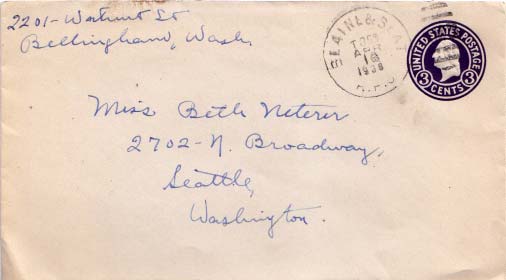 2201 - Walnut St
Bellingham, Wash.
BLAINE & SEAT
TR 59
APR
16
1938
R.P.O
UNITED STATES POSTAGE
3 CENTS 3
Miss Beth Neterer
2702 - N. Broadway,
Seattle,
Washington.